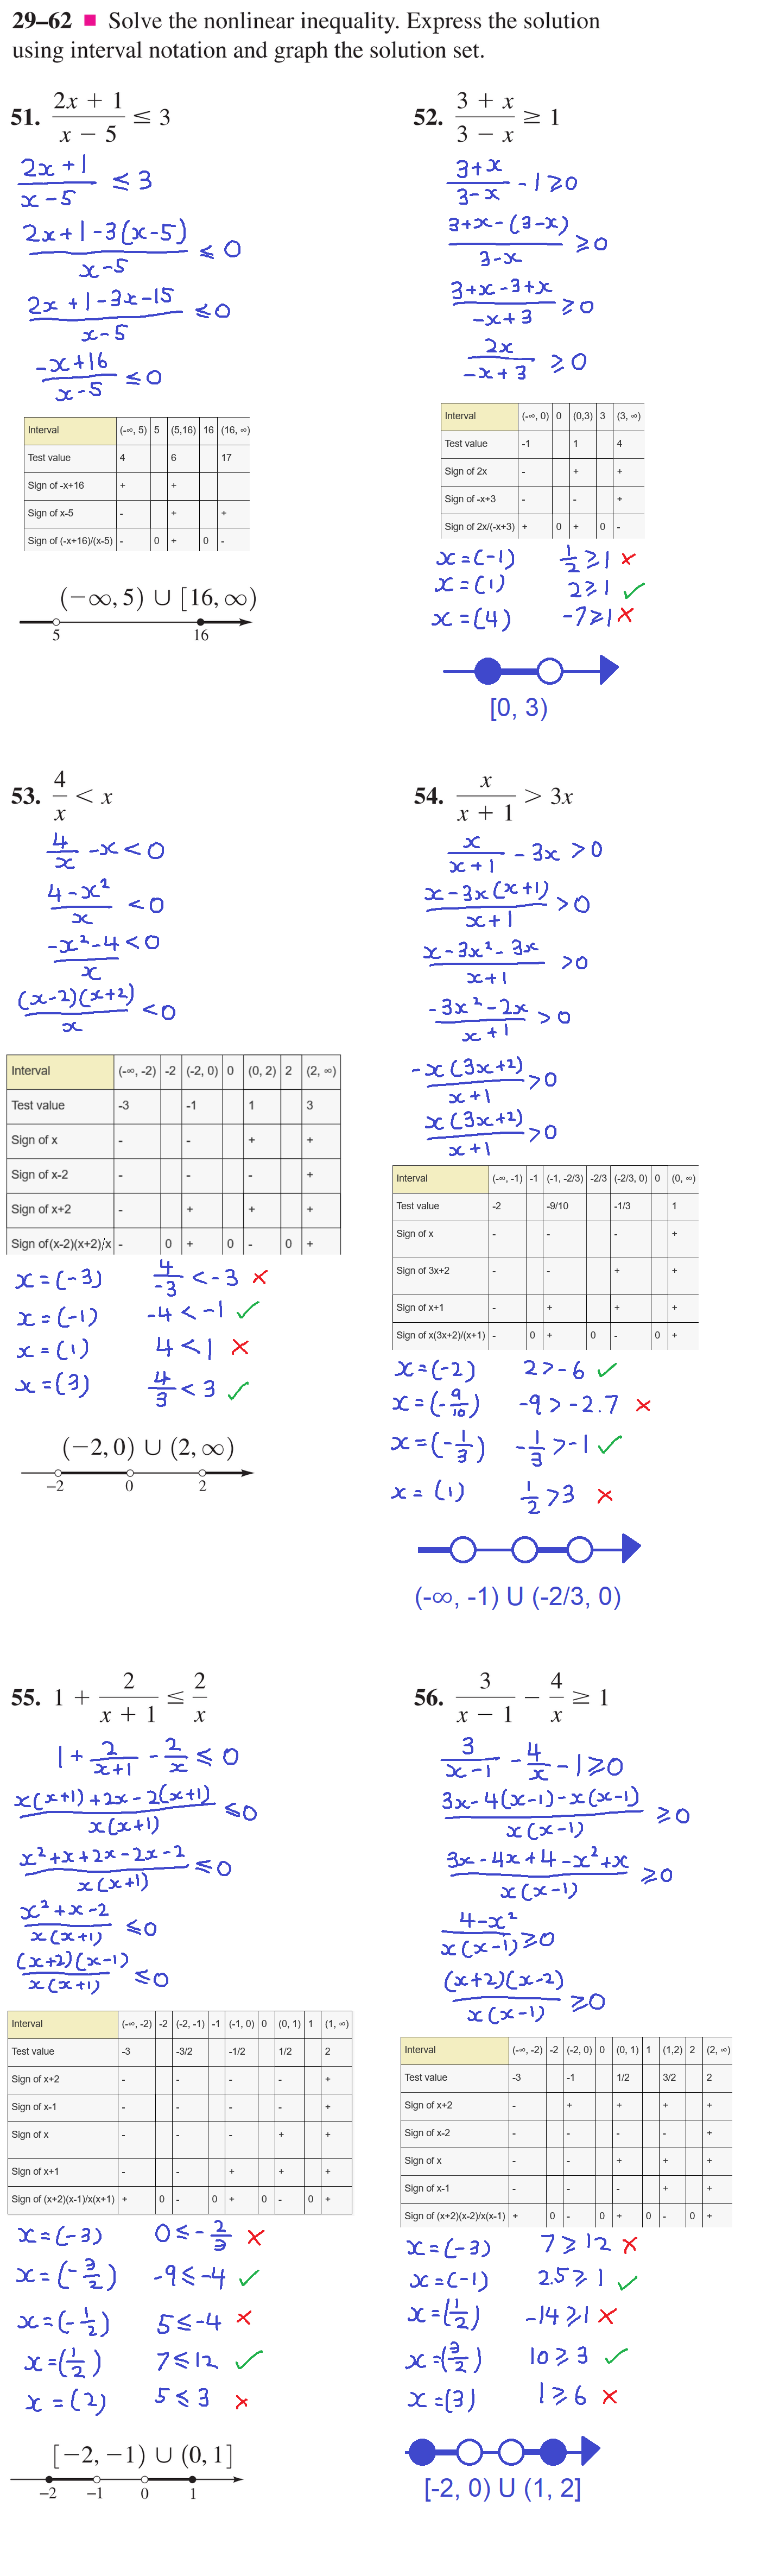 29–62 ■ Solve the nonlinear inequality. Express the solution
using interval notation and graph the solution set.
51. (2x + 1)/(x − 5) ≤ 3
(2x+1)/(x-5) ≤ 3
(2x+1-3(x-5))/(x-5) ≤ 0
(2x+1-3x-15)/(x-5) ≤ 0
(-x+16)/(x-5) ≤ 0
Interval (-∞, 5) 5 (5,16) 16 (16, ∞)
Test value 4 6 17
Sign of -x+16 + +
Sign of x-5 - + +
Sign of (-x+16)/(x-5) - 0 + 0 -
(−∞, 5) ∪ [16, ∞)
5 16
52. (3 + x)/(3 − x) ≥ 1
(3+x)/(3-x) -1 ≥ 0
(3+x-(3-x))/(3-x) ≥ 0
(3+x-3+x)/(-x+3) ≥ 0
2x/(-x+3) ≥ 0
Interval (-∞, 0) 0 (0,3) 3 (3, ∞)
Test value -1 1 4
Sign of 2x - + +
Sign of -x+3 - - +
Sign of 2x/(-x+3) + 0 + 0 -
x=(-1) 1/2 ≥ 1 ×
x=(1) 2 ≥ 1 ✓
x=(4) -7 ≥ 1 ×
[0, 3)
53. 4/x < x
4/x -x < 0
(4-x²)/x < 0
(-x²-4)/x < 0
(x-2)(x+2)/x < 0
Interval (-∞, -2) -2 (-2, 0) 0 (0, 2) 2 (2, ∞)
Test value -3 -1 1 3
Sign of x - - + +
Sign of x-2 - - - +
Sign of x+2 - + + +
Sign of(x-2)(x+2)/x - 0 + 0 - 0 +
x=(-3) 4/-3 < -3 ×
x=(-1) -4 < -1 ✓
x=(1) 4 < 1 ×
x=(3) 4/3 < 3 ✓
(−2, 0) ∪ (2, ∞)
−2 0 2
54. x/(x + 1) > 3x
x/(x+1) - 3x > 0
(x-3x(x+1))/(x+1) > 0
(x-3x²-3x)/(x+1) > 0
(-3x²-2x)/(x+1) > 0
-x(3x+2)/(x+1) > 0
x(3x+2)/(x+1) > 0
Interval (-∞, -1) -1 (-1, -2/3) -2/3 (-2/3, 0) 0 (0, ∞)
Test value -2 -9/10 -1/3 1
Sign of x - - - +
Sign of 3x+2 - - + +
Sign of x+1 - + + +
Sign of x(3x+2)/(x+1) - 0 + 0 - 0 +
x=(-2) 2 > -6 ✓
x=(-9/10) -9 > -2.7 ×
x=(-1/3) -1/3 > -1 ✓
x=(1) 1/2 > 3 ×
(-∞, -1) U (-2/3, 0)
55. 1 + 2/(x + 1) ≤ 2/x
1+ 2/(x+1) - 2/x ≤ 0
(x(x+1)+2x-2(x+1))/(x(x+1)) ≤ 0
(x²+x+2x-2x-2)/(x(x+1)) ≤ 0
(x²+x-2)/(x(x+1)) ≤ 0
(x+2)(x-1)/(x(x+1)) ≤ 0
Interval (-∞, -2) -2 (-2, -1) -1 (-1, 0) 0 (0, 1) 1 (1, ∞)
Test value -3 -3/2 -1/2 1/2 2
Sign of x+2 - - - - +
Sign of x-1 - - - - +
Sign of x - - - + +
Sign of x+1 - - + + +
Sign of (x+2)(x-1)/x(x+1) + 0 - 0 + 0 - 0 +
x=(-3) 0 ≤ -2/3 ×
x=(-3/2) -9 ≤ -4 ✓
x=(-1/2) 5 ≤ -4 ×
x=(1/2) 7 ≤ 12 ✓
x=(2) 5 ≤ 3 ×
[−2, −1) ∪ (0, 1]
−2 −1 0 1
56. 3/(x − 1) − 4/x ≥ 1
3/(x-1) - 4/x -1 ≥ 0
(3x-4(x-1)-x(x-1))/(x(x-1)) ≥ 0
(3x-4x+4-x²+x)/(x(x-1)) ≥ 0
(4-x²)/(x(x-1)) ≥ 0
(x+2)(x-2)/(x(x-1)) ≥ 0
Interval (-∞, -2) -2 (-2, 0) 0 (0, 1) 1 (1,2) 2 (2, ∞)
Test value -3 -1 1/2 3/2 2
Sign of x+2 - + + + +
Sign of x-2 - - - - +
Sign of x - - + + +
Sign of x-1 - - - + +
Sign of (x+2)(x-2)/x(x-1) + 0 - 0 + 0 - 0 +
x=(-3) 7 ≥ 12 ×
x=(-1) 2.5 ≥ 1 ✓
x=(1/2) -14 ≥ 1 ×
x=(3/2) 10 ≥ 3 ✓
x=(3) 1 ≥ 6 ×
[-2, 0) U (1, 2]